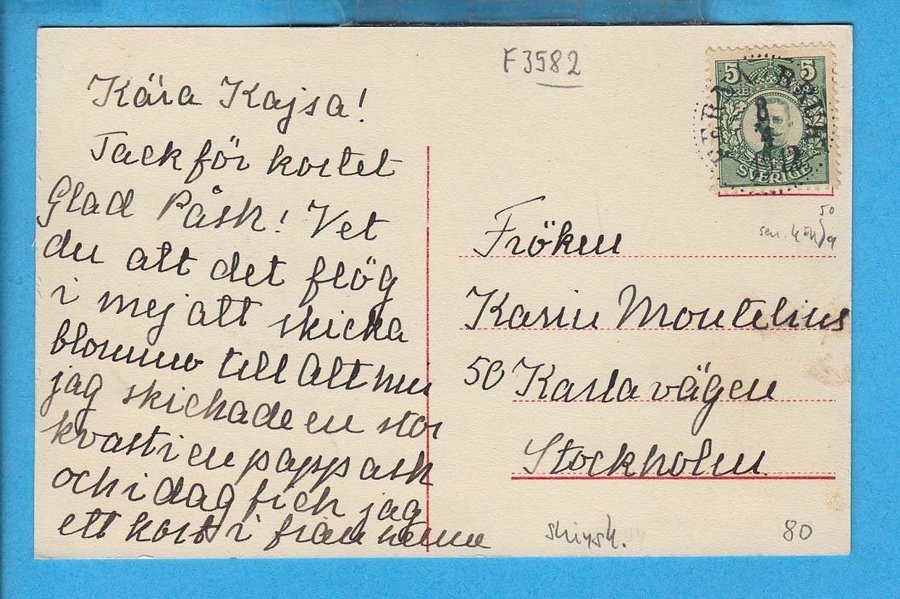 F3582
5 5
JÄRNA BRUK
8
4
1912
SVERIGE
Kära Kajsa!
Tack för kortet
Glad Påsk! Vet
du att det flög
i mej att skicka
blommo till
jag skickade en stor
kvast i en papp ask
och i dag fick jag
ett kort i från henne
50
Fröken
Karin Montelius
50 Karlavägen
Stockholm
80